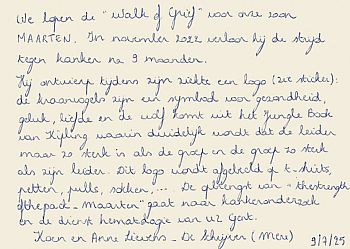 We lopen de "Walk of Grief" voor onze zoon
MAARTEN. In november 2022 verloor hij de strijd
tegen kanker na 9 maanden.
Hij ontwierp tijdens zijn ziekte een logo (zie sticker):
de kraanvogels zijn een symbool voor gezondheid,
geluk, liefde en de wolf komt uit het Jungle Book
van Kipling waarin duidelijk wordt dat de leider
maar zo sterk is als de groep en de groep zo sterk
als zijn leider. Dit logo wordt afgebeeld op t-shirts,
petten, pulls, sokken, .... De opbrengst van "thestrength
ofthepack_maarten" gaat naar kankeronderzoek
en de dienst hematologie van UZ Gent.
Koen en Anne - De Schrijver (Mere) 9/7/25